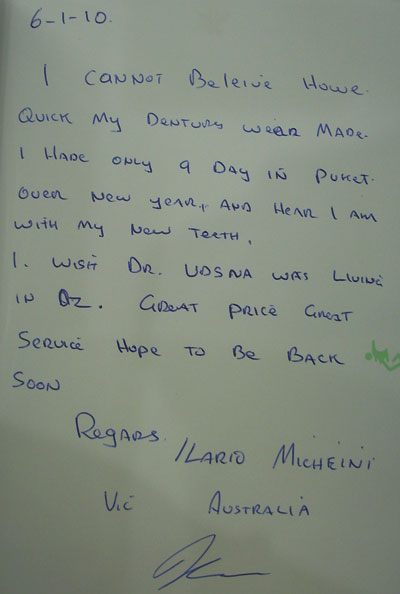 6-1-10.
I CANNOT Beleive Howe.
QUICK My DENTURS WEAR MADE.
I HADE ONLY 9 DAY IN PUKET.
OVER NEW yEAR, AND HEAR I AM
WITH My NEW TEETH.
I. WISH DR. UDSNA WAS LIVING
IN OZ. GREAT PRICE GREAT
SERVICE HOPE TO BE BACK
SOON
REGARS.
ILARIO MICHEINI
VIC AUSTRALIA